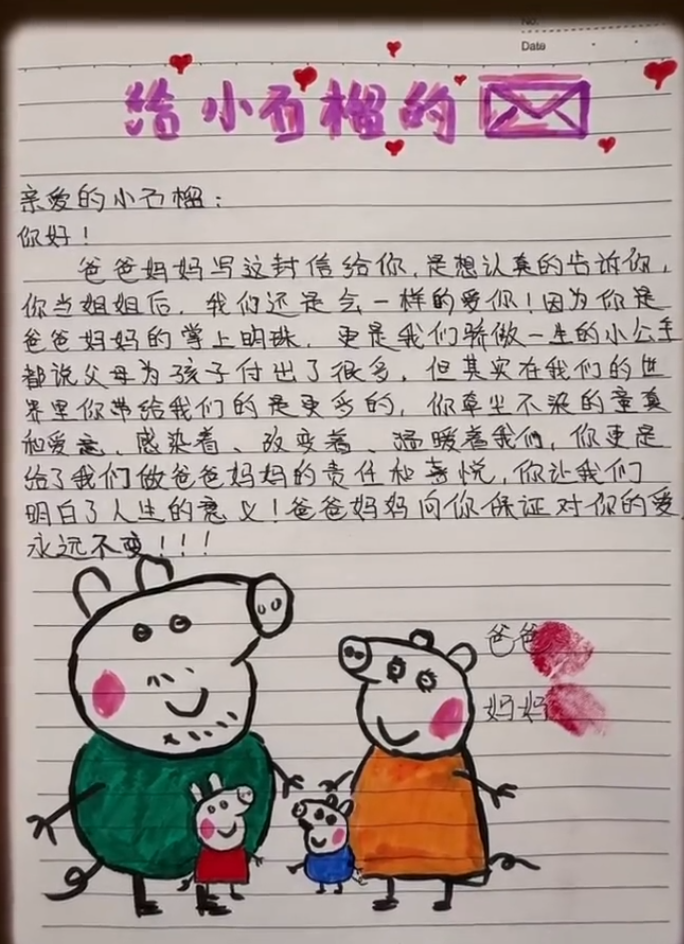 No.
Date
给小石榴的
亲爱的小石榴：
你好！
爸爸妈妈写这封信给你，是想认真的告诉你，
你当姐姐后，我们还是会一样的爱你！因为你是
爸爸妈妈的掌上明珠，更是我们骄傲一生的小公主
都说父母为孩子付出了很多，但其实在我们的世
界里你带给我们的是更多的，你草尘不染的童真
和爱意、感染着、改变着、温暖着我们，你更是
给了我们做爸爸妈妈的责任和喜悦，你让我们
明白了人生的意义！爸爸妈妈向你保证对你的爱，
永远不变！！！
爸爸
妈妈